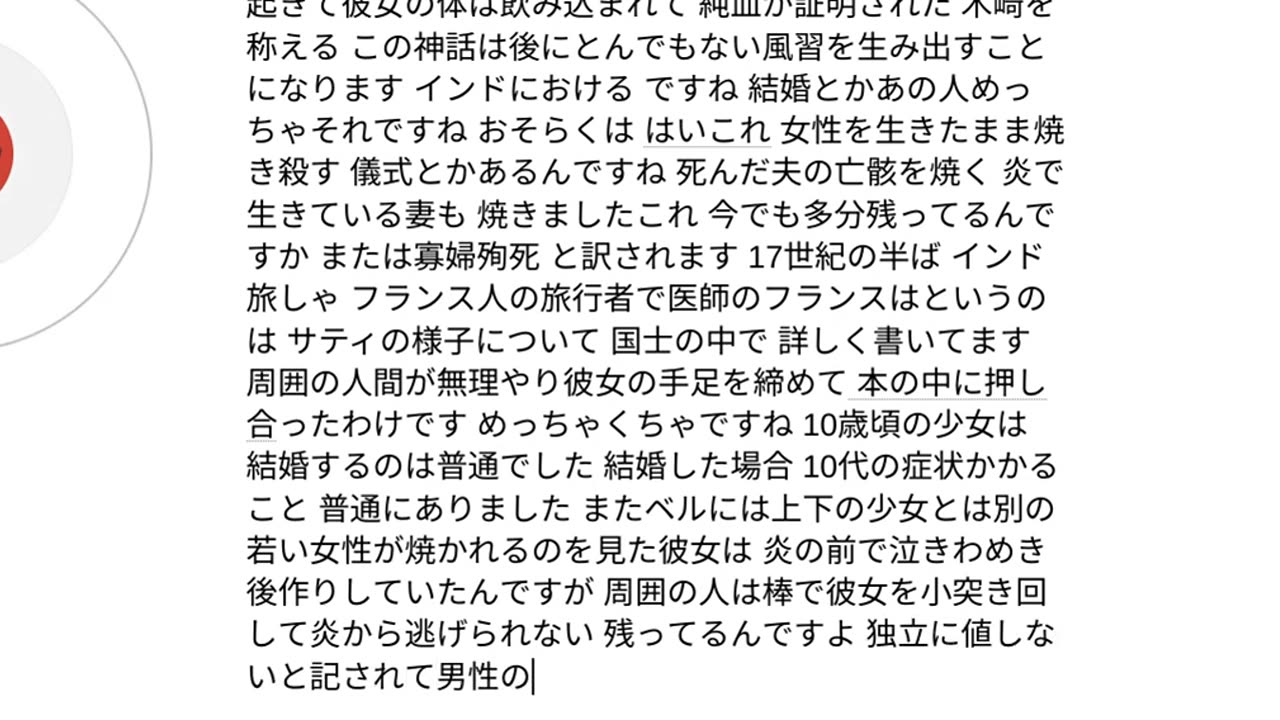 起きて彼女の体は飲み込まれて 純血が証明された 木崎を
称える この神話は後にとんでもない風習を生み出すこと
になります インドにおける ですね 結婚とかあの人めっ
ちゃそれですね おそらくは はいこれ 女性を生きたまま焼
き殺す 儀式とかあるんですね 死んだ夫の亡骸を焼く 炎で
生きている妻も 焼きましたこれ 今でも多分残ってるんで
すか または寡婦殉死 と訳されます 17世紀の半ば インド
旅しゃ フランス人の旅行者で医師のフランスはというの
は サティの様子について 国士の中で 詳しく書いてます
周囲の人間が無理やり彼女の手足を締めて 本の中に押し
合ったわけです めっちゃくちゃですね 10歳頃の少女は
結婚するのは普通でした 結婚した場合 10代の症状かかる
こと 普通にありました またベルには上下の少女とは別の
若い女性が焼かれるのを見た彼女は 炎の前で泣きわめき
後作りしていたんですが 周囲の人は棒で彼女を小突き回
して炎から逃げられない 残ってるんですよ 独立に値しな
いと記されて男性の